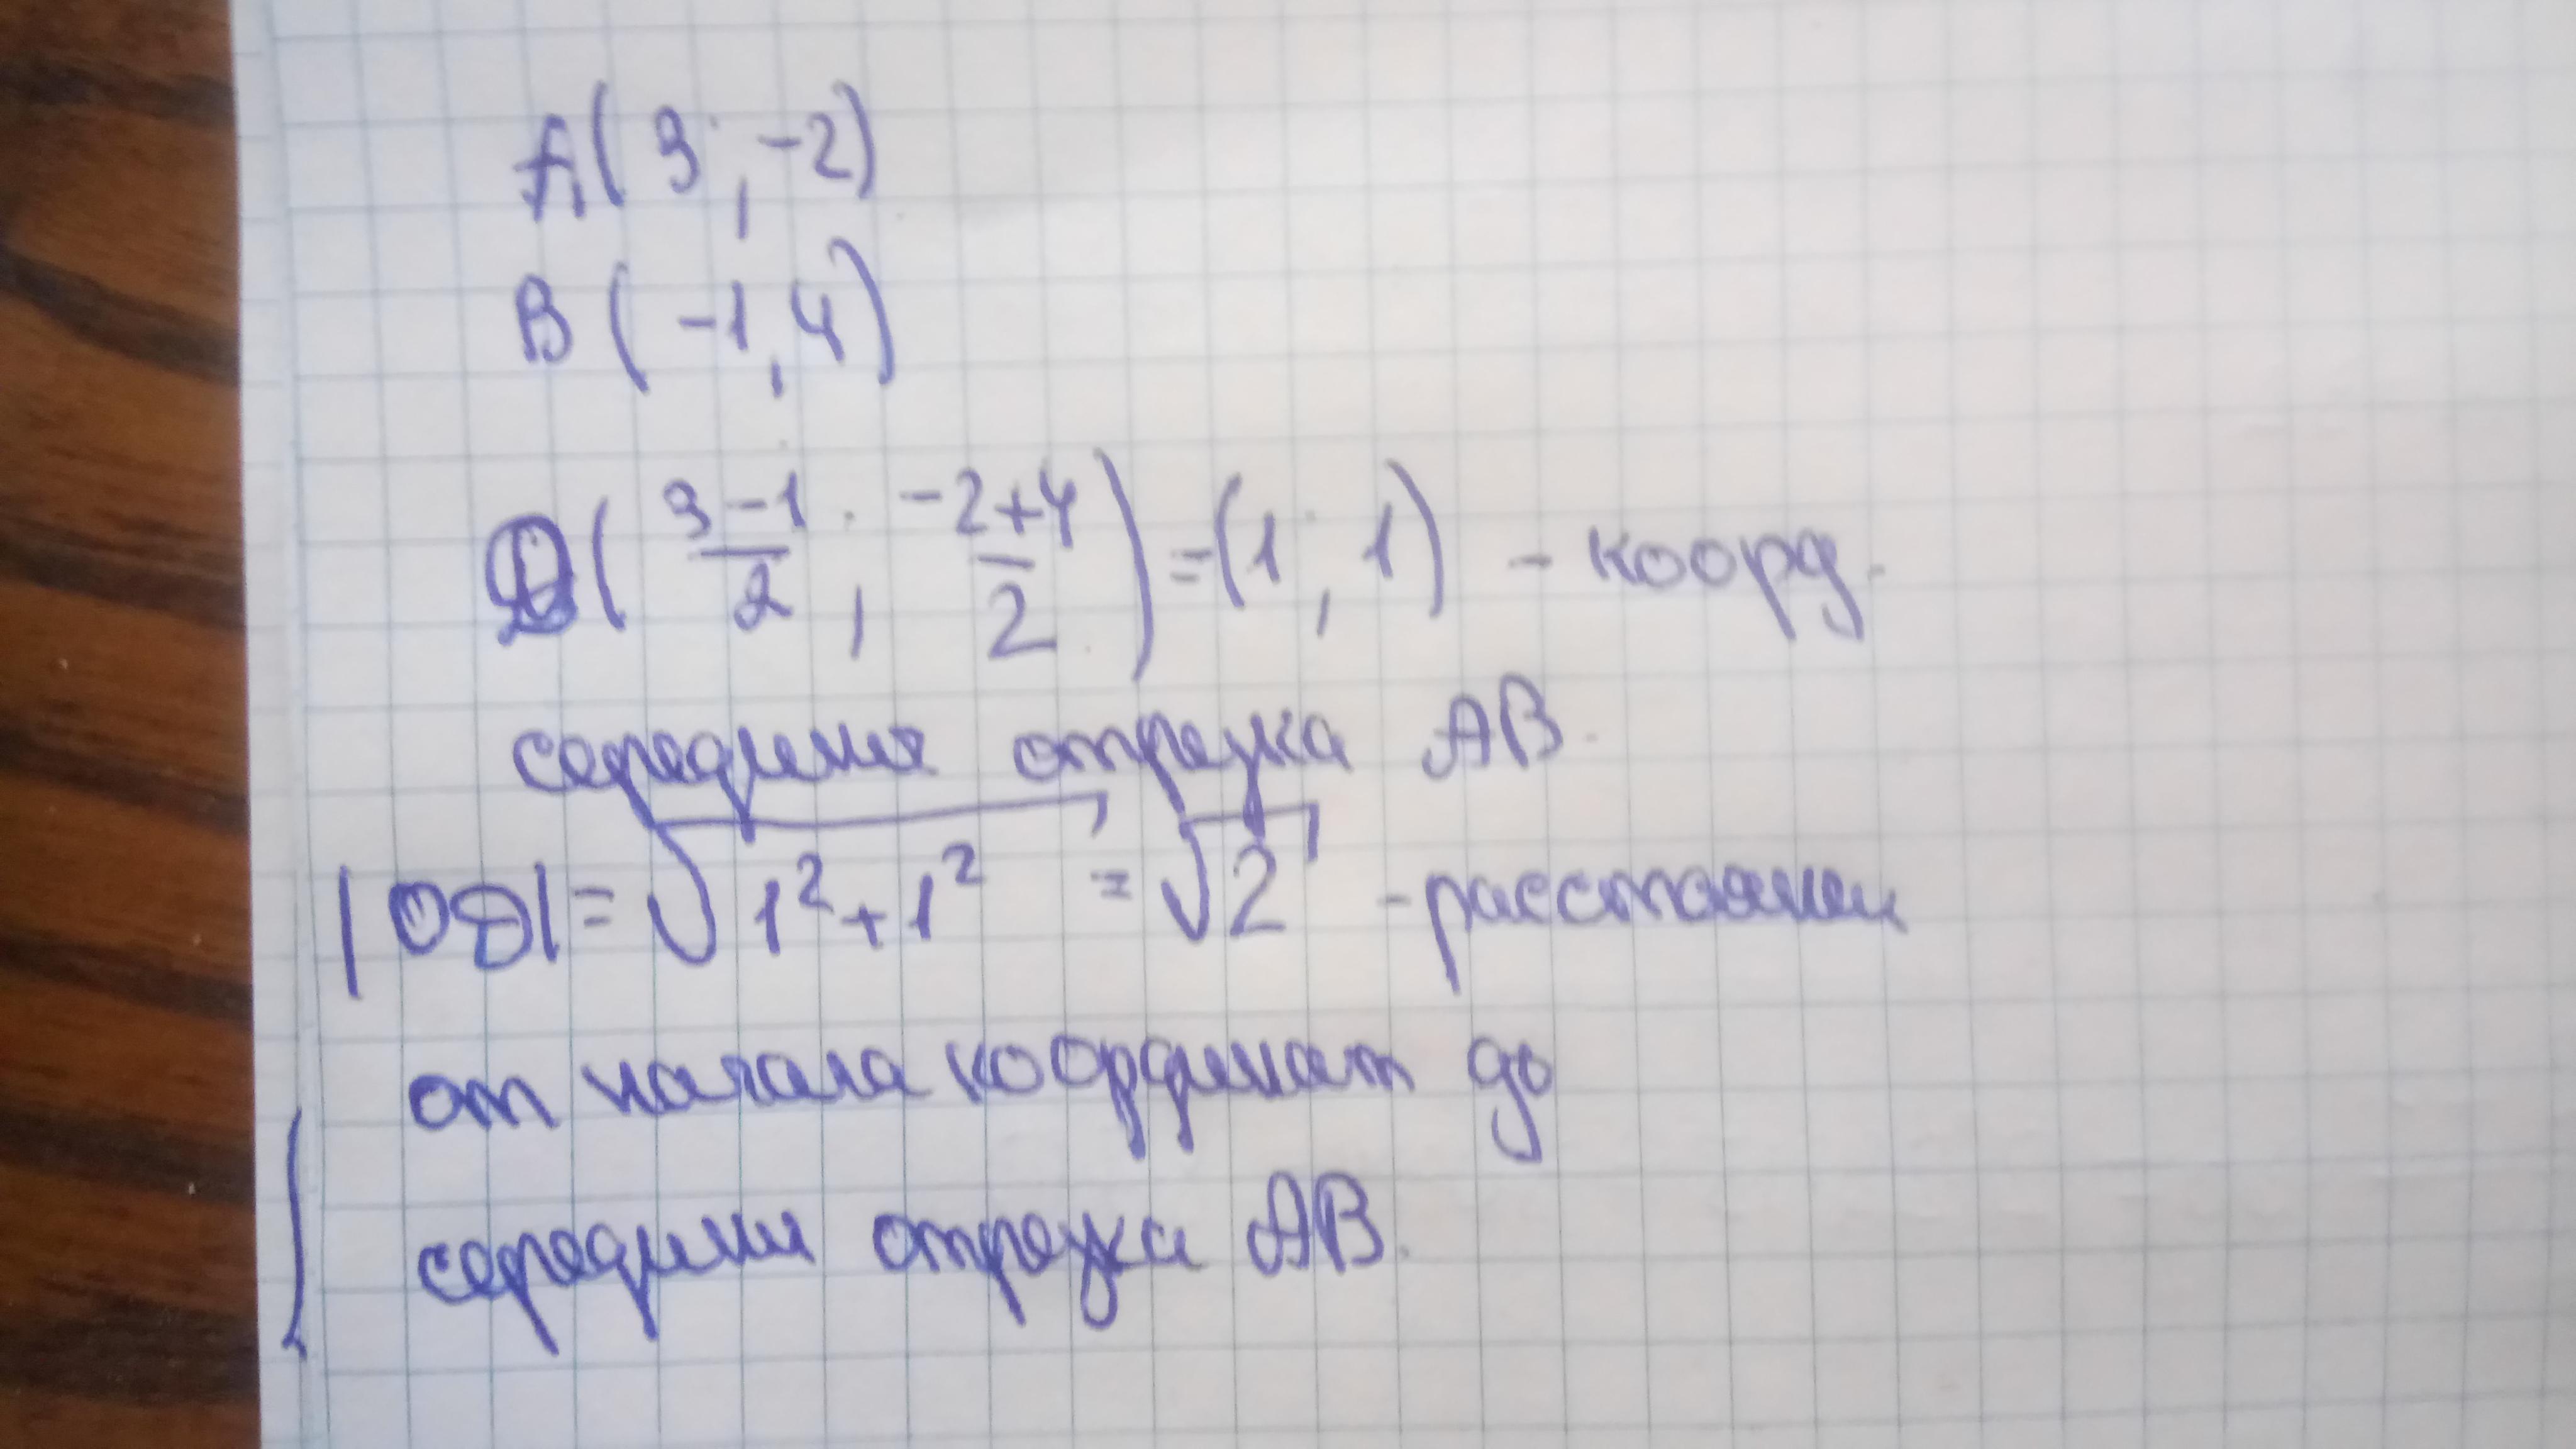 A(3; -2)
B(-1; 4)
D((3-1)/2; (-2+4)/2) = (1; 1) - коорд.
середина отрезка AB.
|OD| = √(1²+1²) = √2 - расстояние
от начала координат до
середины отрезка AB.